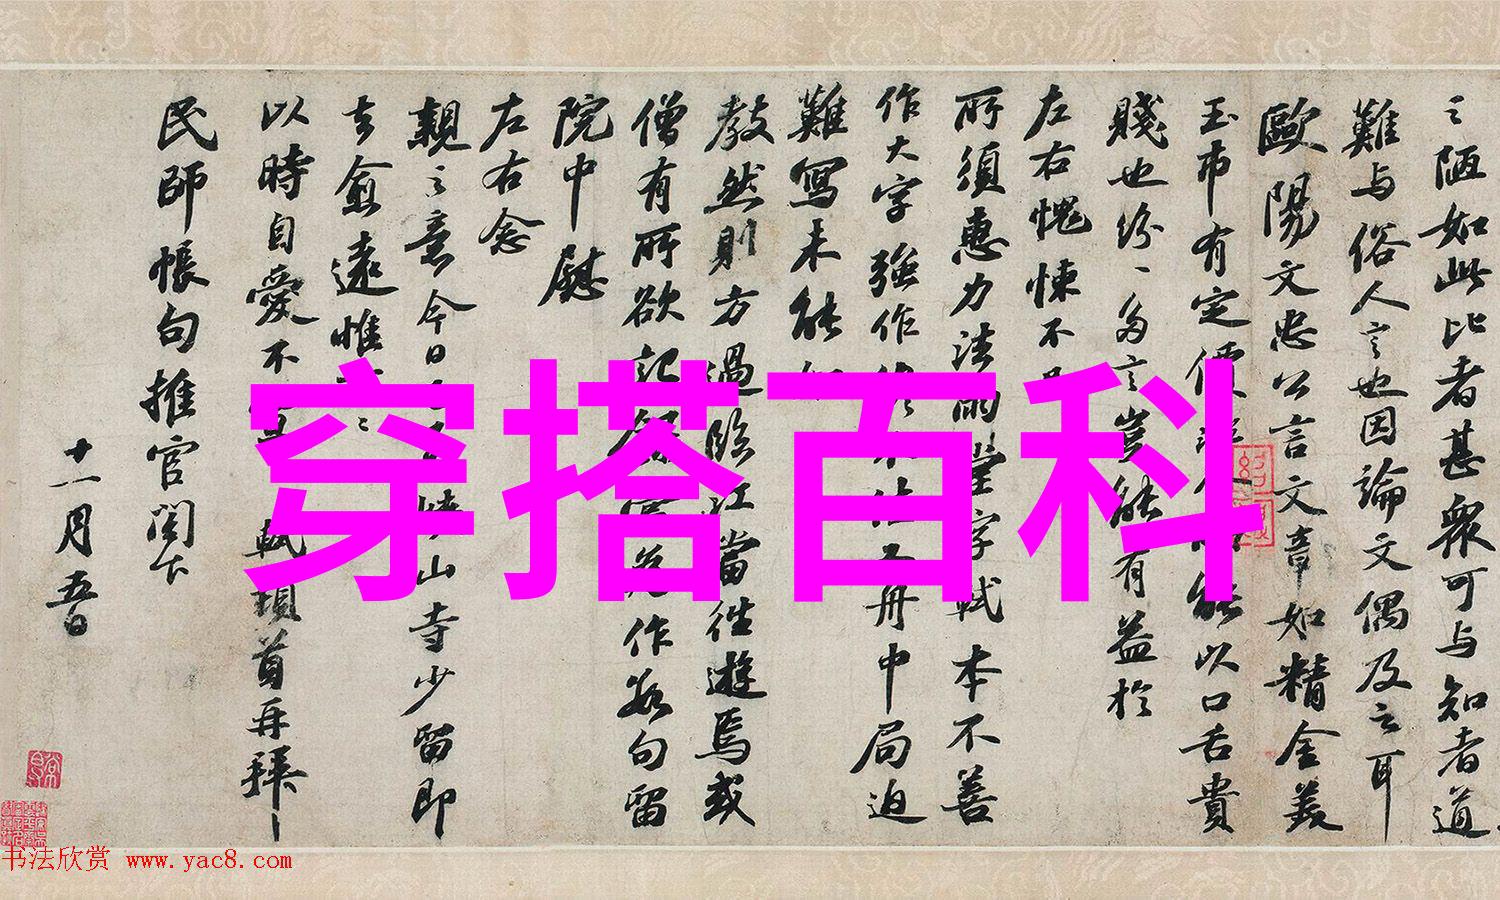 之陋如此比者甚衆可与知者道
難与俗人言也因論文偶及之耳
歐陽文忠公言文章如精金美
玉市有定價能以口舌貴
賤也紛〻多言豈能有益於
左右愧悚不
所須惠力法雨堂字軾本不善
作大字強作不佳又舟中局迫
難寫未能如
教然則方過臨江當往遊焉或
僧有所欲記作數句留
院中慰
左右念
親之意今日峽山寺少留即
去愈遠惟
以時自愛不軾頓首再拜
民師帳句推官閣下
十一月五日
穿搭百科
书法欣赏 www.yac8.com